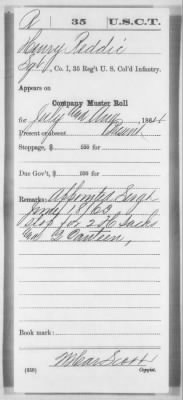 R | 35 | U.S.C.T.
Henry Reddic
Sgt, Co. I, 35 Reg't U. S. Col'd Infantry.
Appears on
Company Muster Roll
for July and Aug, 1864
Present or absent Present
Stoppage, $ 100 for
Due Gov't, $ 100 for
Remarks: Appointed Sergt
July 18/63
Stop for 2 H Sacks
and Canteen,
Book mark:
(358)
Copyist.